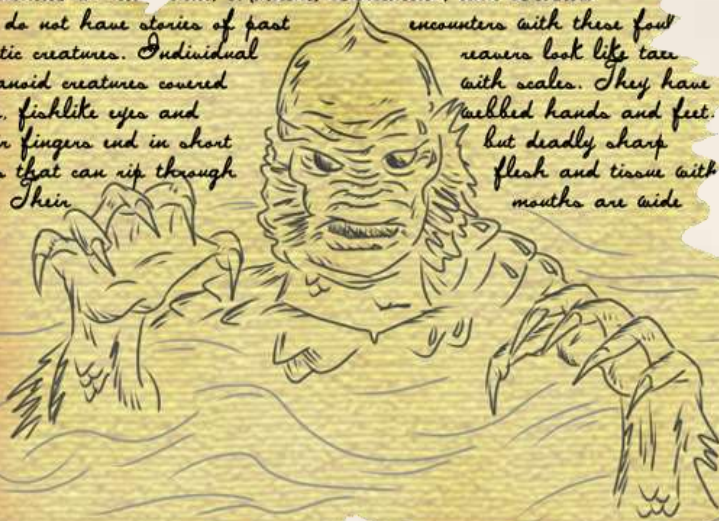 do not have stories of past encounters with these foul
tic creatures. Individual reavers look like tall
anoid creatures covered with scales. They have
, fishlike eyes and webbed hands and feet.
r fingers end in short but deadly sharp
s that can rip through flesh and tissue with
Their mouths are wide